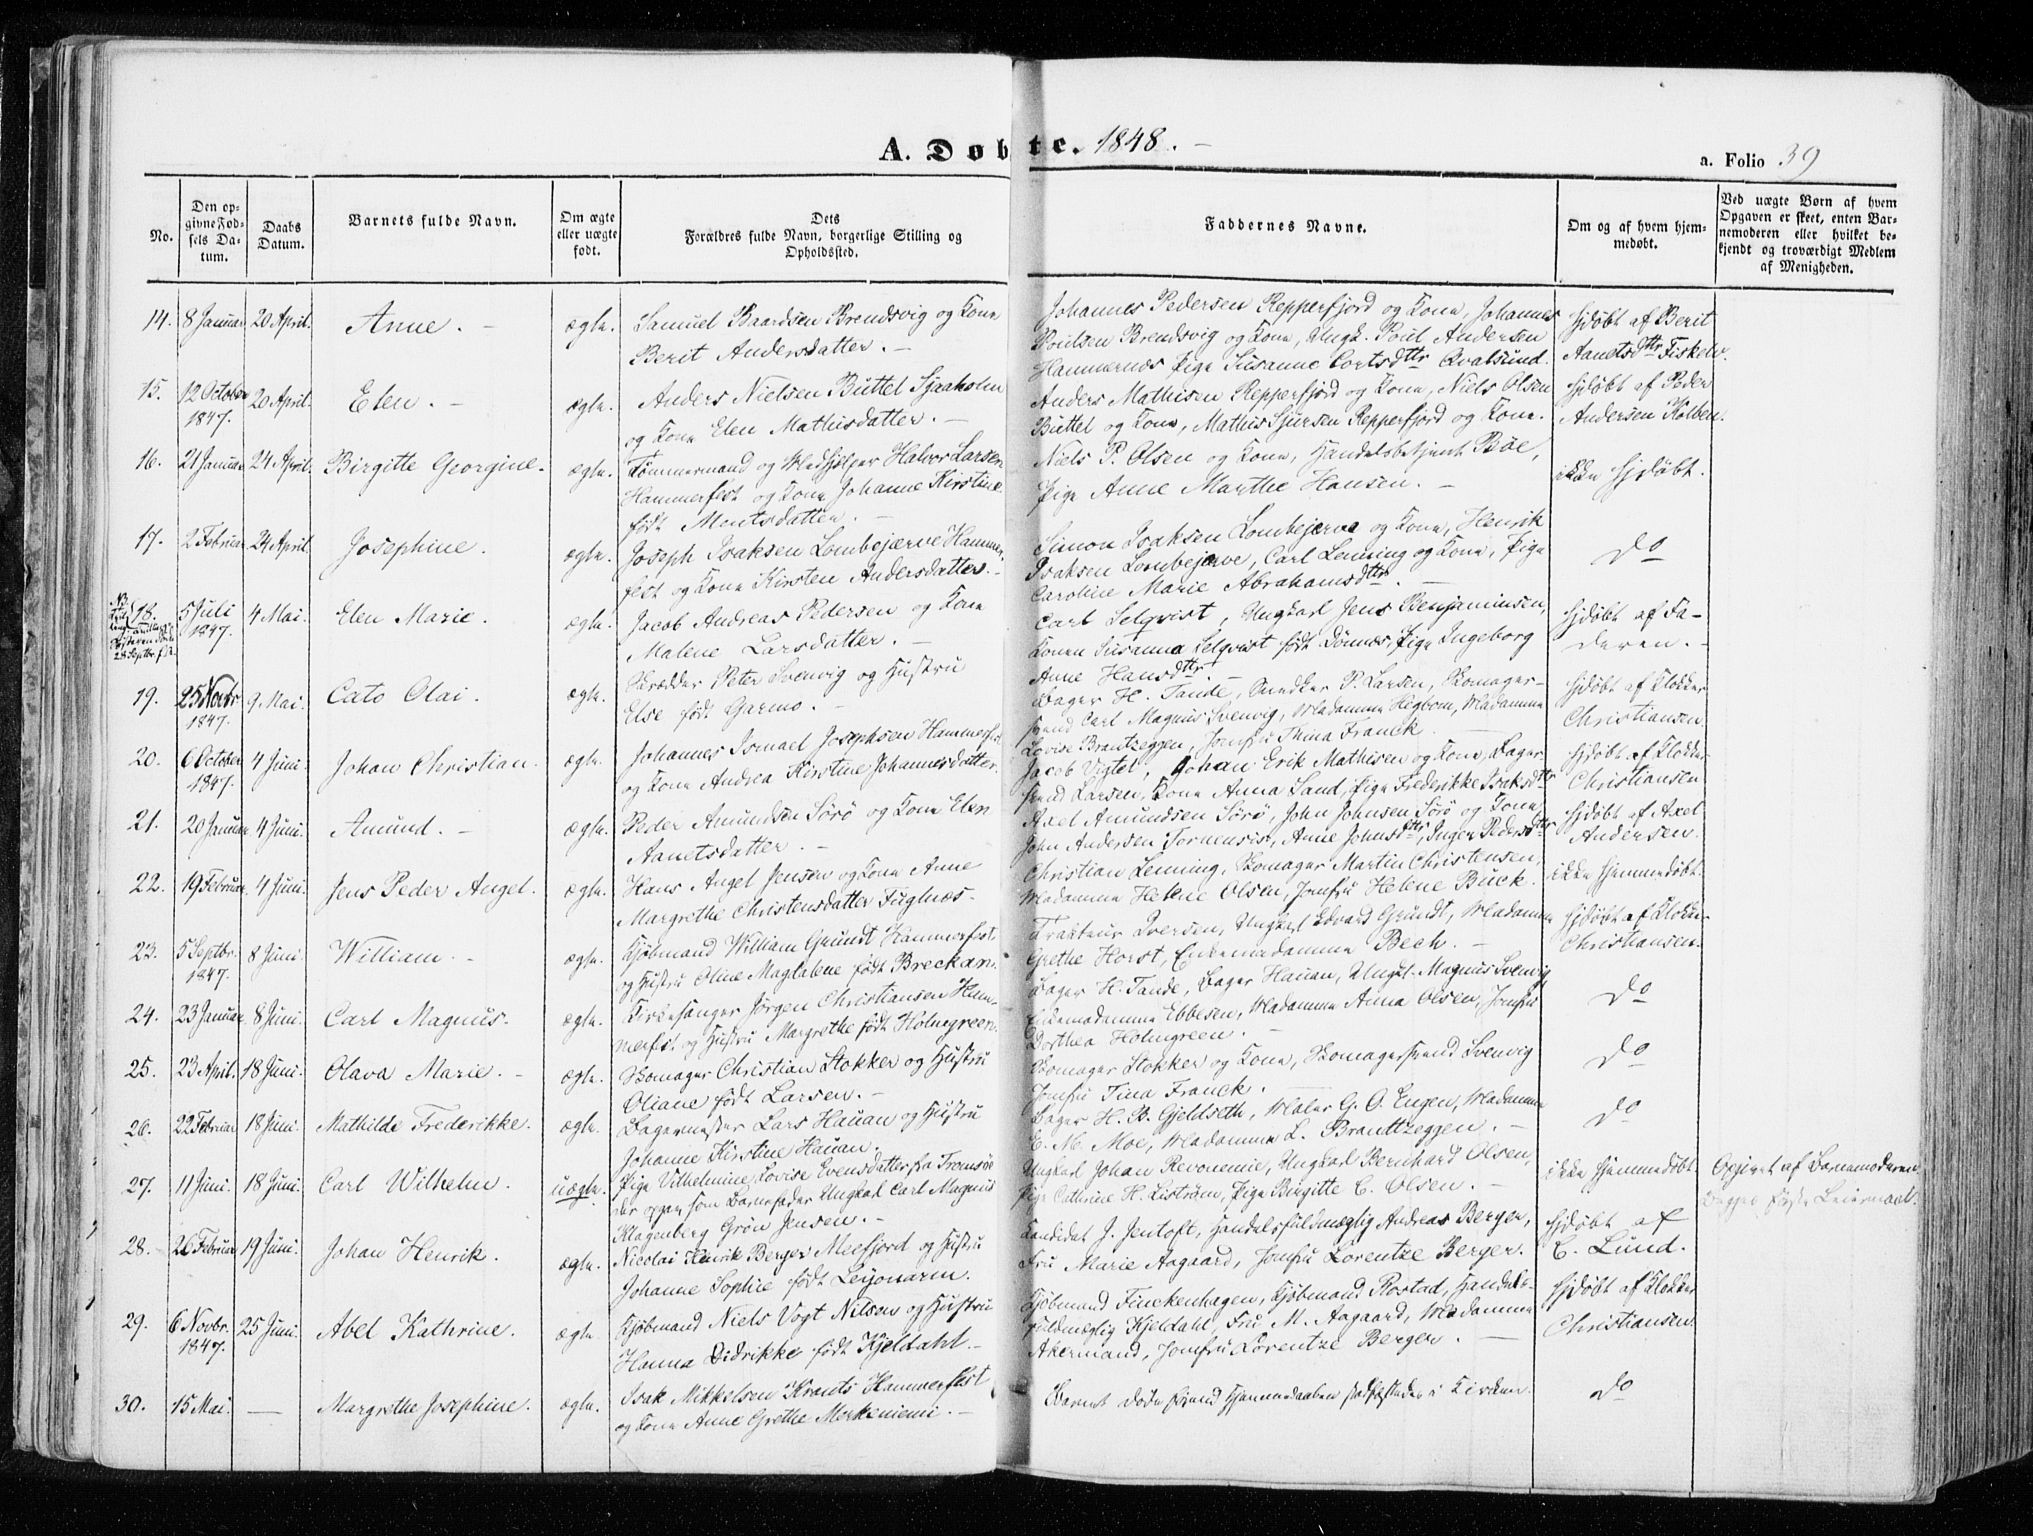 A. Døbte. 1848. -
a. Folio 39
No.
Den opgivne Fødsels Datum.
Daabs Datum.
Barnets fulde Navn.
Om ægte eller uægte født.
Dets Forældres fulde Navn, borgerlige Stilling og Opholdssted.
Faddernes Navne.
Om og af hvem hjemmedøbt.
Ved uægte Børn af hvem Opgaven er skeet, enten Barnemoderen eller hvilket bekjendt og troværdigt Medlem af Menigheden.
14. 8 Januar 20 April. Anne. - ægte. Samuel Baardsen Brendsvig og Kone
Berit Andersdatter. -
Johannes Pedersen Repperfjord og Kone, Johannes
Poulsen Brendsvig og Kone, Ungk. Poul Andersen
Hammernes Pige Susanne Cortsdttr Qvalsund.
Hjdøbt af Berit
Aanetsdttr Fiskelv.
15. 12 October 1847. 20 April. Elen. - ægte. Anders Nielsen Büttel Sjaaholm
og Kone Elen Mathisdatter. -
Anders Mathisen Repperfjord og Kone, Niels Olsen
Büttel og Kone, Mathis Sjursen Repperfjord og Kone.
Hjdøbt af Peder
Andersen Kolben.
16. 21 Januar 24 April. Birgitte Georgine. ægte. Tømmermand og Medhjelper Halvor Larsen
Hammerfest og Kone Johanne Kirstine
født Montsdatter. -
Niels P. Olsen og Kone, Handelsbetjent Bøe,
Pige Anne Marthe Hansen. -
ikke hjdøbt.
17. 2 Februar 24 April. Josephine. ægte. Joseph Isaksen Lombejærve Hammer-
fest og Kone Kirsten Andersdatter. -
Simon Isaksen Lombejerve og Kone, Henrik
Isaksen Lombejerve, Carl Lenning og Kone, Pige
Caroline Marie Abrahamsdttr. -
do
18. 5 Juli 1847. 4 Mai. Elen Marie. ægte. Jacob Andreas Pedersen og Kone
Malene Larsdatter. -
28 Septbr.
Carl Selqvist, Ungkarl Jens Benjaminsen,
Konen Susanna Selqvist født Dønnæs, Pige Ingeborg
Anne Hansdttr. -
Hjdøbt af Fa-
deren. -
19. 25 Novbr 1847. 9 Mai. Cato Olai. ægte. Skrædder Peter Svenvig og Hustru
Else født Garmo. -
Bager H. Tande, Snedker P. Larsen, Skomager-
svend Carl Magnus Svenvig, Madamme Hegbom, Madamme
Lovise Brantzeggen, Jomfru Thina Franck.
Hjdøbt af Klokker
Christiansen
20. 6 October 1847. 4 Juni. Johan Christian. ægte. Johannes Ismael Josephsen Hammerfest
og Kone Andrea Kirstine Johannesdatter.
Jacob Vigtel, Johan Erik Mathisen og Kone, Bager-
svend Larsen, Kone Anna Sand, Pige Frederikke Isaksdttr
Hjdøbt af Klokker
Christiansen
21. 20 Januar 4 Juni. Amund. - ægte. Peder Amundsen Sörö og Kone Elen
Aanetsdatter. -
Axel Amundsen Sörö, John Johnsen Sörö og Kone,
John Andersen Tornensis, Anne Johnsdttr, Inger Pedersdttr
Hjdøbt af Axel
Andersen.
22. 19 Februar 4 Juni. Jens Peder Angel. ægte. Hans Angel Jensen og Kone Anne
Margrethe Christensdatter Fuglnæs.
Christian Lenning, Skomager Martin Christensen,
Madamme Helene Olsen, Jomfru Helene Buck.
ikke hjemmedøbt.
23. 5 Septbr. 1847. 8 Juni. William. - ægte. Kjøbmand William Grundt Hammerfest,
og Hustru Oline Magdalene født Breckan.
Tracteur Iversen, Ungkarl Edvard Grundt, Madamme
Grethe Horst, Enkemadamme Bech. -
Hjdøbt af Klokker
Christiansen.
24. 23 Januar 8 Juni. Carl Magnus. ægte. Kirkesanger Jørgen Christiansen Ham-
merfest og Hustru Margrethe født Holmgreen.
Bager H. Tande, Bager Hauan, Ungk. Magnus Svenvig,
Enkemadamme Ebbesen, Madamme Anna Olsen, Jomfru
Dorthea Holmgreen. -
do
25. 23 April. 18 Juni. Olava Marie. - ægte. Skomager Christian Stokker og Hustru
Oliane født Larsen. -
Skomager Stokker og Kone, Skomagersvend Svenvig
Jomfru Tina Franck. -
do
26. 22 Februar 18 Juni. Mathilde Frederikke. ægte. Bagermester Lars Hauan og Hustru
Johanne Kirstine Hauan.
Bager H. B. Gjeldseth, Maler G. O. Engen, Madamme
E. M. Moe, Madamme L. Branttzeggen. -
do
27. 11 Juni. 18 Juni. Carl Wilhelm. uægte. Pige Vilhelmine Lovise Evensdatter fra Tromsøe
der opgav som Barnefader Ungkarl Carl Magnus
Klagenberg Grøn Jensen. -
Ungkarl Johan Revonemie, Ungkarl Bernhard Olsen,
Pige Cathrine H. Liström, Pige Birgitte C. Olsen. -
ikke hjemmedøbt.
Opgivet af Barnemoderen
Begges første Leiermaal.
28. 26 Februar 19 Juni. Johan Henrik. ægte. Nicolai Henrik Berger Meefjord og Hustru
Johanne Sophie født Leijonarm.
Kandidat J. Jentoft, Handelsfuldmægtig Andreas Berger,
Fru Marie Aagaard, Jomfru Lorentze Berger.
Hjdøbt af
C. Lund.
29. 6 Novbr. 1847. 25 Juni. Abel Kathrine. ægte. Kjøbmand Niels Vogt Nilsen og Hustru
Hanna Didrikke født Kjeldahl. -
Kjøbmand Finckenhagen, Kjøbmand Rostad, Handels-
fuldmægtig Kjeldahl, Fru M. Aagaard, Madamme
Akermand, Jomfru Lorentze Berger. -
Hjdøbt af Klokker
Christiansen.
30. 15 Mai. — Margrethe Josephine. ægte. Isak Mikkelsen Krants Hammerfest
og Kone Anne Grethe Merkeniemi. -
Barnet døde førend Hjemmedaaben stadfæstedes i Kirken.
do